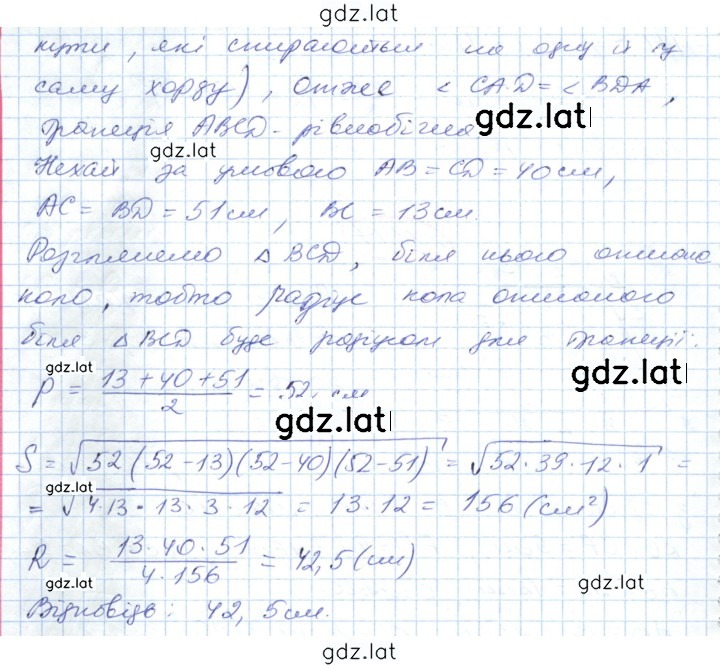 gdz.lat
кути, які спираються на одну й ту
саму хорду), отже < CAD = < BDA,
gdz.lat
трапеція ABCD - рівнобічна.
gdz.lat
Нехай за умовою AB = CD = 40 см,
AC = BD = 51 см, BC = 13 см.
Розглянемо △ BCD, біля нього описано
коло, тобто радіус кола описаного
біля △ BCD буде радіусом для трапеції:
gdz.lat
gdz.lat
p = (13 + 40 + 51)/2 = 52 см
gdz.lat
S = √52(52-13)(52-40)(52-51) = √52·39·12·1 =
gdz.lat
= √4·13·13·3·12 = 13·12 = 156 (см²)
R = (13·40·51)/(4·156) = 42,5 (см)
gdz.lat
gdz.lat
Відповідь: 42,5 см.
gdz.lat